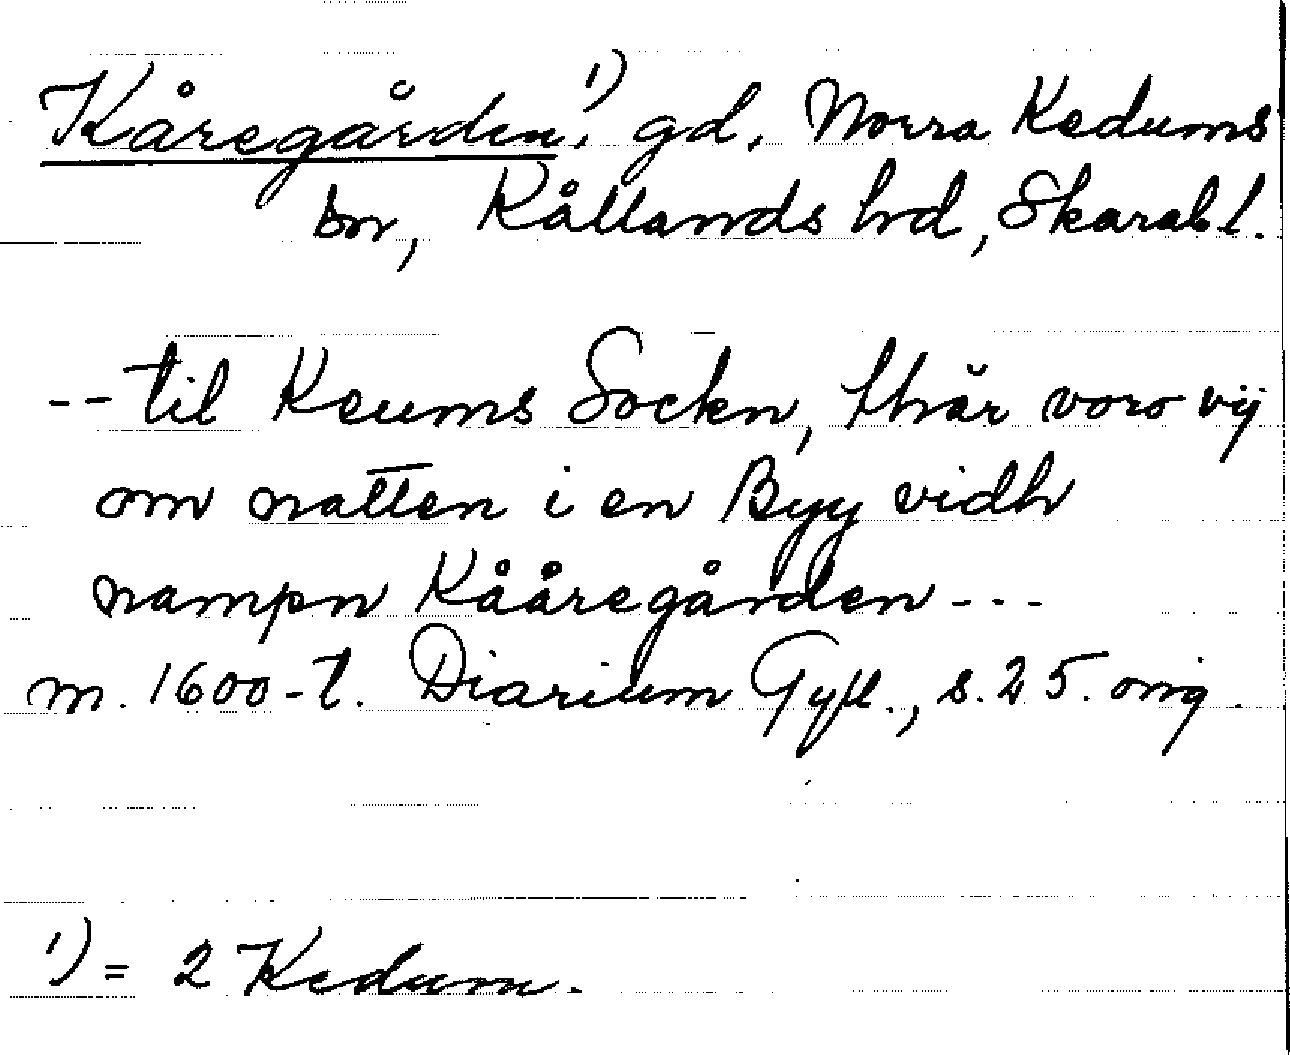 Kåregården,¹⁾ gd, Norra Kedums
sn, Kållands hd, Skarab l.
-- til Keums Sockn, thär voro vij
om natten i en Byy vidh
nampn Kååregården ---
m. 1600-t. Diarium Gyll., s. 25. omg.
¹⁾ = 2 Kedum.